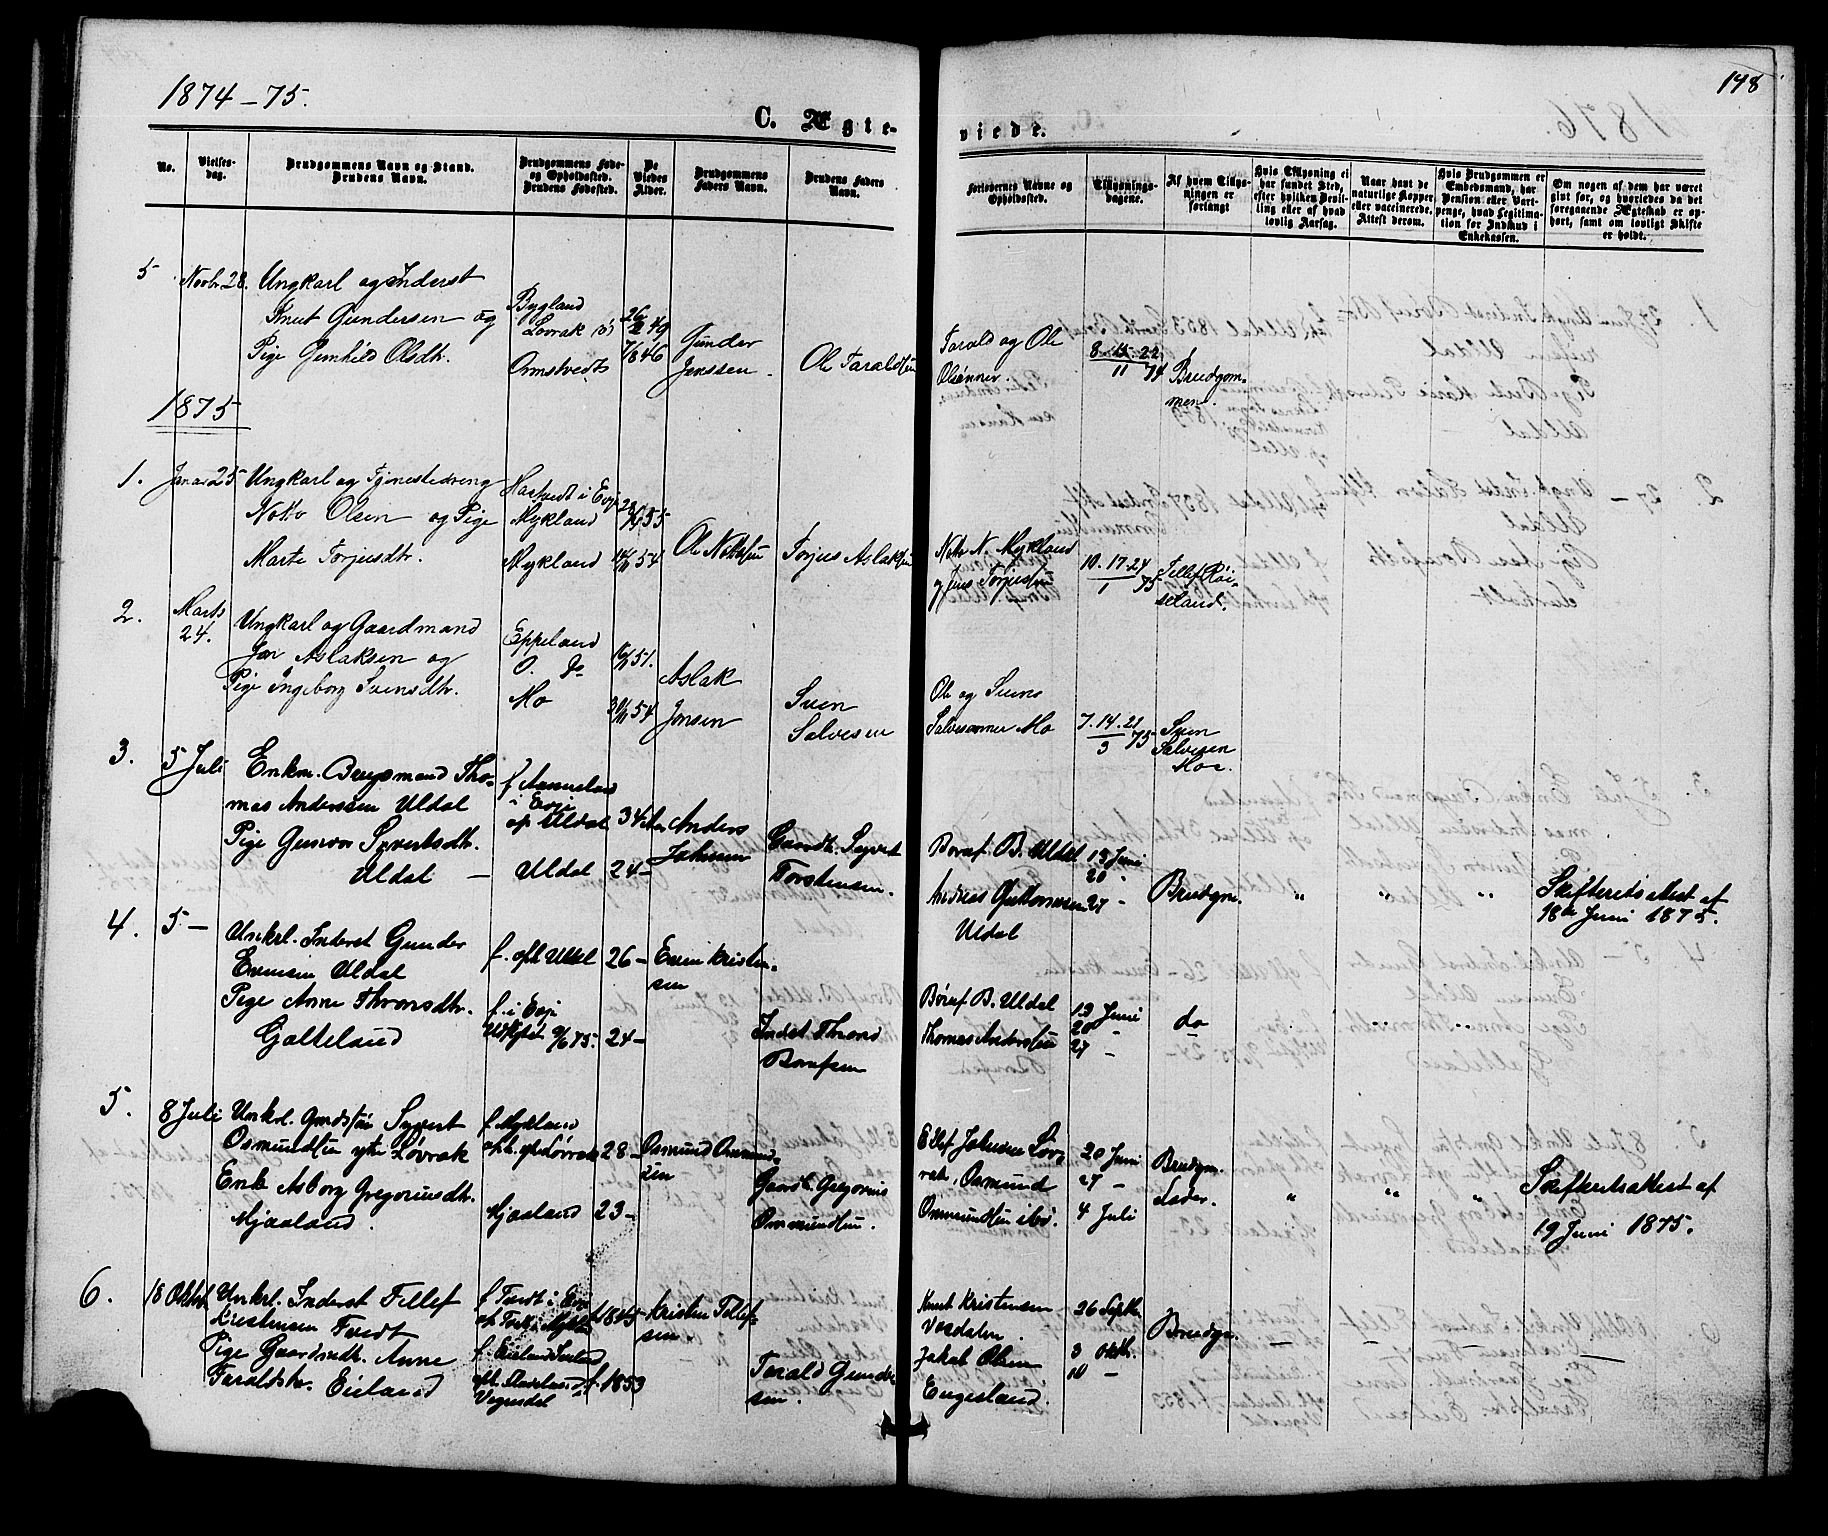 1874-75.
148
C. Ægte-
viede.
No.
Vielses-
dag.
Brudgommens Navn og Stand.
Brudens Navn.
Brudgommens Føde-
og Opholdssted.
Brudens Fødested.
De
Viedes
Alder.
Brudgommens
Faders Navn.
Brudens Faders
Navn.
Forlovernes Navne og
Opholdssted.
Tillysnings-
dagene.
Af hvem Tillys-
ningen er
forlangt
Hvis Tillysning ei
har fundet Sted,
efter hvilken Bevil-
ling eller af hvad
lovlig Aarsag.
Naar havt de
naturlige Kopper
eller vaccinerede.
Attest derom.
Hvis Brudgommen er
Embedsmand, har
Pension eller Vart-
penge, hvad Legitima-
tion for Indskud i
Enkekassen.
Om nogen af dem har været
gift før, og hvorledes da det
foregaaende Ægteskab er op-
hørt, samt om lovligt Skifte
er holdt.
5
Novbr 28.
Ungkarl og Inderst
Knut Gundersen og
Pige Gunhild Olsdtr.
Bygland
Lovrak
Omstvedt
26/2 49
7/8 46
Gunder
Jenssen
Ole Taraldsen
Tarald og Ole
Olsønner
8. 15. 22
11 74
Brudgom-
men.
1875
1.
Januar 25
Ungkarl og Tjenestedreng
Notto Olsen og Pige
Marte Torjusdtr.
i Evje
Mykland
Mykland
55
54
Ole Nottosen
Torjus Aslaksen
Notto N. Mykland
og Jens Torjusen
10. 17. 24
1 75
Tellef Røi-
seland.
2.
Marts
24.
Ungkarl og Gaardmand
Jon Aslaksen og
Pige Ingeborg Svensdtr.
Eppeland
Mo
51.
54
Aslak
Jonsen
Sven
Salvesen
Ole og Svens
Salvesønner Mo
7. 14. 21
3 75
Sven
Salvesen
Moe
3.
5 Juli
Enkm. Brugsmand Tho-
mas Anderssen Uldal
Pige Gunvor Syvertsdtr.
Uldal
i Evje
op Uldal
Uldal
34
24-
Anders
Gaardb. Syvert
Torstensen.
Boruf B. Uldal
Andreas Guttormsen
Uldal
13 Juni
20 "
27 -
Brudgm.
"
"
"
Skifteretsattest af
18de Juni 1875.
4.
5 -
Unkrl. Inderst Gunder
Evensen Uldal
Pige Anne Thronsdtr.
Galteland
f. oph Uldal
f. i Evje
9/6 75.
26-
24-
Even Kristen-
sen
Inderst Thrond
Borufsen
Børuf B. Uldal
Thomas Anderssen
13 Juni
20 "
27 -
do
5.
8 Juli
Unkrl. Gmdssøn Syvert
Osmundsen ytre Løvrak
Enke Asborg Gregoriusdtr.
Mjaaland.
f. Mykland
oph. ytre Løvrak
Mjaaland
28-
23-
Osmund Osmund-
sen
Gaardb. Gregorius
Ommundsen.
Ellef Johnsen Løv-
rak, Osmund
Ommundsen
20 Juni
27 -
4 Juli
Brudgm.
Fader.
"
"
"
Skifteretsattest af
19 Juni 1875.
6.
18 Oktbr
Unkrl. Inderst Tellef
Kristensen Tvedt
Pige Gaardmdtr. Anne
Taraldsdtr. Eieland
f. Tvedt i Evje
f. Eieland
Vegusdal
f. 1845
f. 1853
Kristen Tellef-
sen.
Tarald Gunder-
sen.
Knut Kristensen
Vasdalen
Jakob Olsen
Engesland.
26 Septbr.
3 Oktbr.
10 -
Brudgm.
-
-
-
-